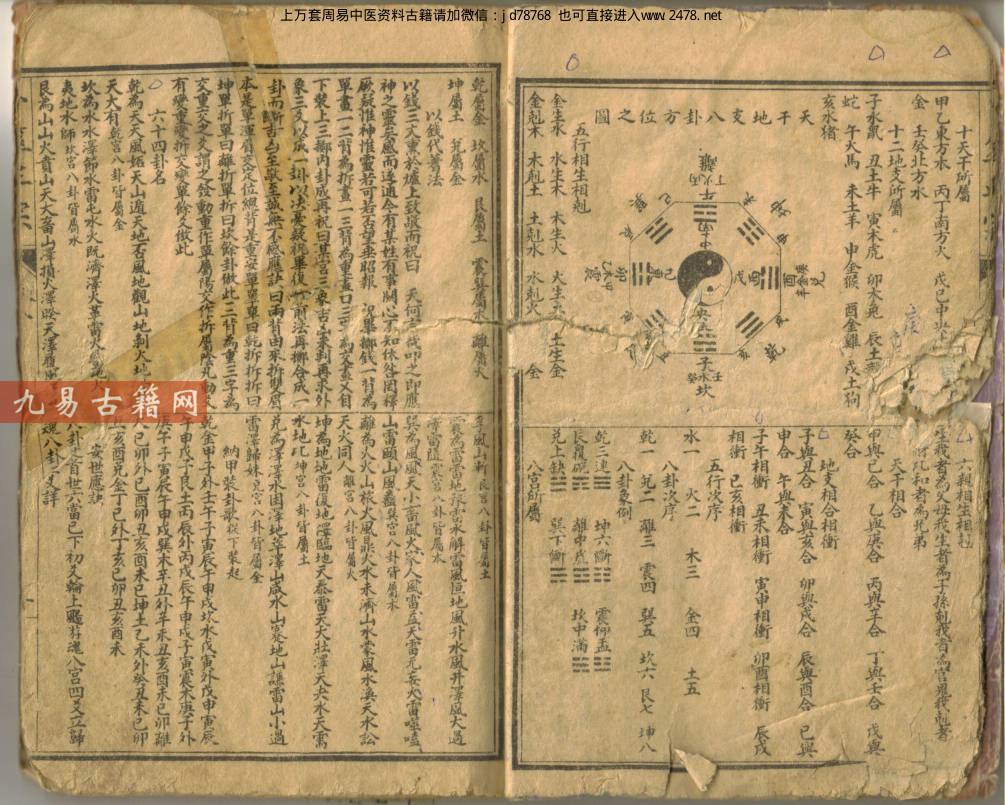 上万套周易中医资料古籍请加微信：jd78768 也可直接进入www.2478.net
九易古籍网
十天干所屬
甲乙東方木 丙丁南方火 戊己中央
金 壬癸北方水
十二地支所屬
子水鼠 丑土牛 寅木虎 卯木兔 辰土
蛇 午火馬 未土羊 申金猴 酉金雞 戌土狗
亥水猪
天干地支八卦方位之圖
五行相生相剋
金生水 水生木 木生火 火生土 土生金
金剋木 木剋土 土剋水 水剋火 金
六親相生相剋
生我者為父母我生者為子孫剋我者為官鬼我剋者
和者為兄弟
天干相合
甲與己合 乙與庚合 丙與辛合 丁與壬合 戊與
癸合
地支相合相衝
子與丑合 寅與亥合 卯與戌合 辰與酉合 巳與
申合 午與未合
子午相衝 丑未相衝 寅申相衝 卯酉相衝 辰戌
相衝 巳亥相衝
五行次序
水一 火二 木三 金四 土五
八卦次序
乾一 兌二 離三 震四 巽五 坎六 艮七 坤八
八卦象例
乾三連 坤六斷 震仰盂
艮覆碗 離中虛 坎中滿
兌上缺 巽下斷
八宮所屬
乾屬金 坎屬水 艮屬土 震巽屬木 離屬火
坤屬土 兌屬金
以錢代蓍法
以錢三文熏於爐上致敬而祝曰 天何言哉叩之即應
神之靈矣感而遂通今有某姓有事關心不知休咎罔釋
厥疑惟神惟靈若可若否望垂昭報 祝畢擲錢一背為
單畫一二背為拆畫 三背為重畫口三字為交畫乂自
下裝上三擲內卦成再祝曰某宮三象吉凶未判再求外
象三爻以成一卦以決憂疑祝畢復如前法再擲合成一
卦而斷吉凶至敬至誠無不感應訣曰兩背由來拆雙眉
本是單渾眉交定位總背是重安單單單曰乾拆拆拆曰
坤單拆單曰離拆單拆曰坎餘卦倣此二背為重三字為
交重交之爻謂之發動重作單屬陽交作拆屬陰凡動爻
有變重變拆交變單餘爻倣此
六十四卦名
乾為天天風姤天山遁天地否風地觀山地剝火地
天大有乾宮八卦皆屬金
坎為水水澤節水雷屯水火既濟澤火革雷火豐地火
夷地水師坎宮八卦皆屬水
艮為山山火賁山天大畜山澤損火澤睽天澤履風
孚風山漸艮宮八卦皆屬土
震為雷雷地豫雷水解雷風恒地風升水風井澤風大過
澤雷隨震宮八卦皆屬木
巽為風風天小畜風火家人風雷益天雷无妄火雷噬嗑
山雷頤山風蠱巽宮八卦皆屬木
離為火火山旅火風鼎火水未濟山水蒙風水渙天水訟
天火同人離宮八卦皆屬火
坤為地地雷復地澤臨地天泰雷天大壯澤天夬水天需
水地比坤宮八卦皆屬土
兌為澤澤水困澤地萃澤山咸水山蹇地山謙雷山小過
雷澤歸妹兌宮八卦皆屬金
納甲裝卦歌從下裝起
乾金甲子外壬午子寅辰午申戌坎水戊寅外戊申寅辰
午申戌子艮土丙辰外丙戌辰午申戌子寅震木庚子外
庚午子寅辰午申戌巽木辛丑外辛未丑亥酉未巳卯離
火己卯外己酉卯丑亥酉未巳坤土乙未外癸丑未巳卯
丑亥酉兌金丁巳外丁亥巳卯丑亥酉未
安世應訣
八卦之首世六當已下初爻輪上颺游魂八宮四爻立歸
魂八卦三爻詳